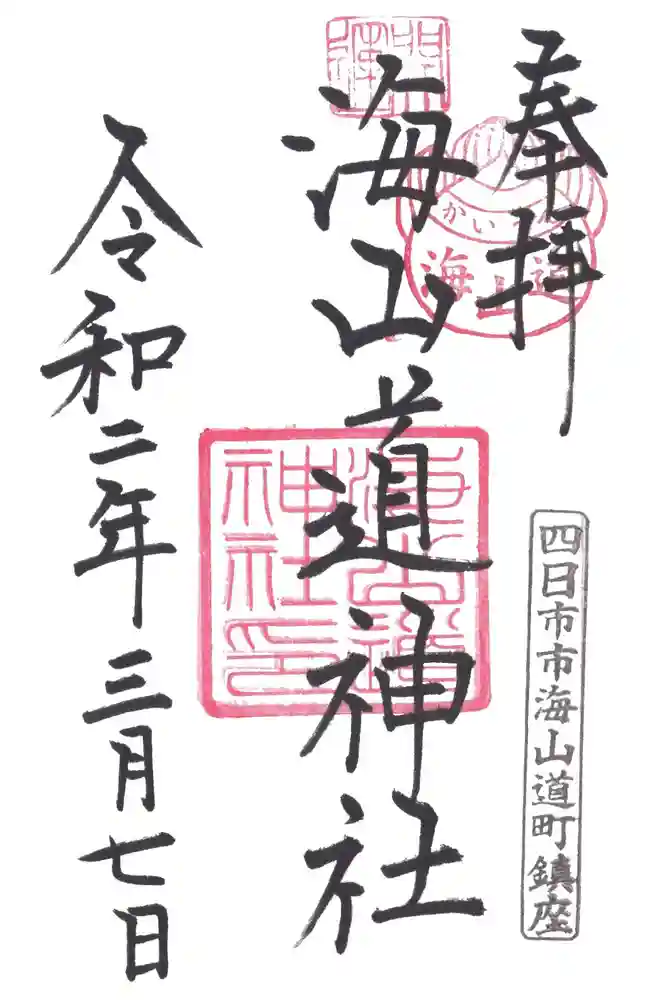 奉拝
かいさん
海山道
海山道神社
海山道神社印
四日市市海山道町鎮座
令和二年三月七日